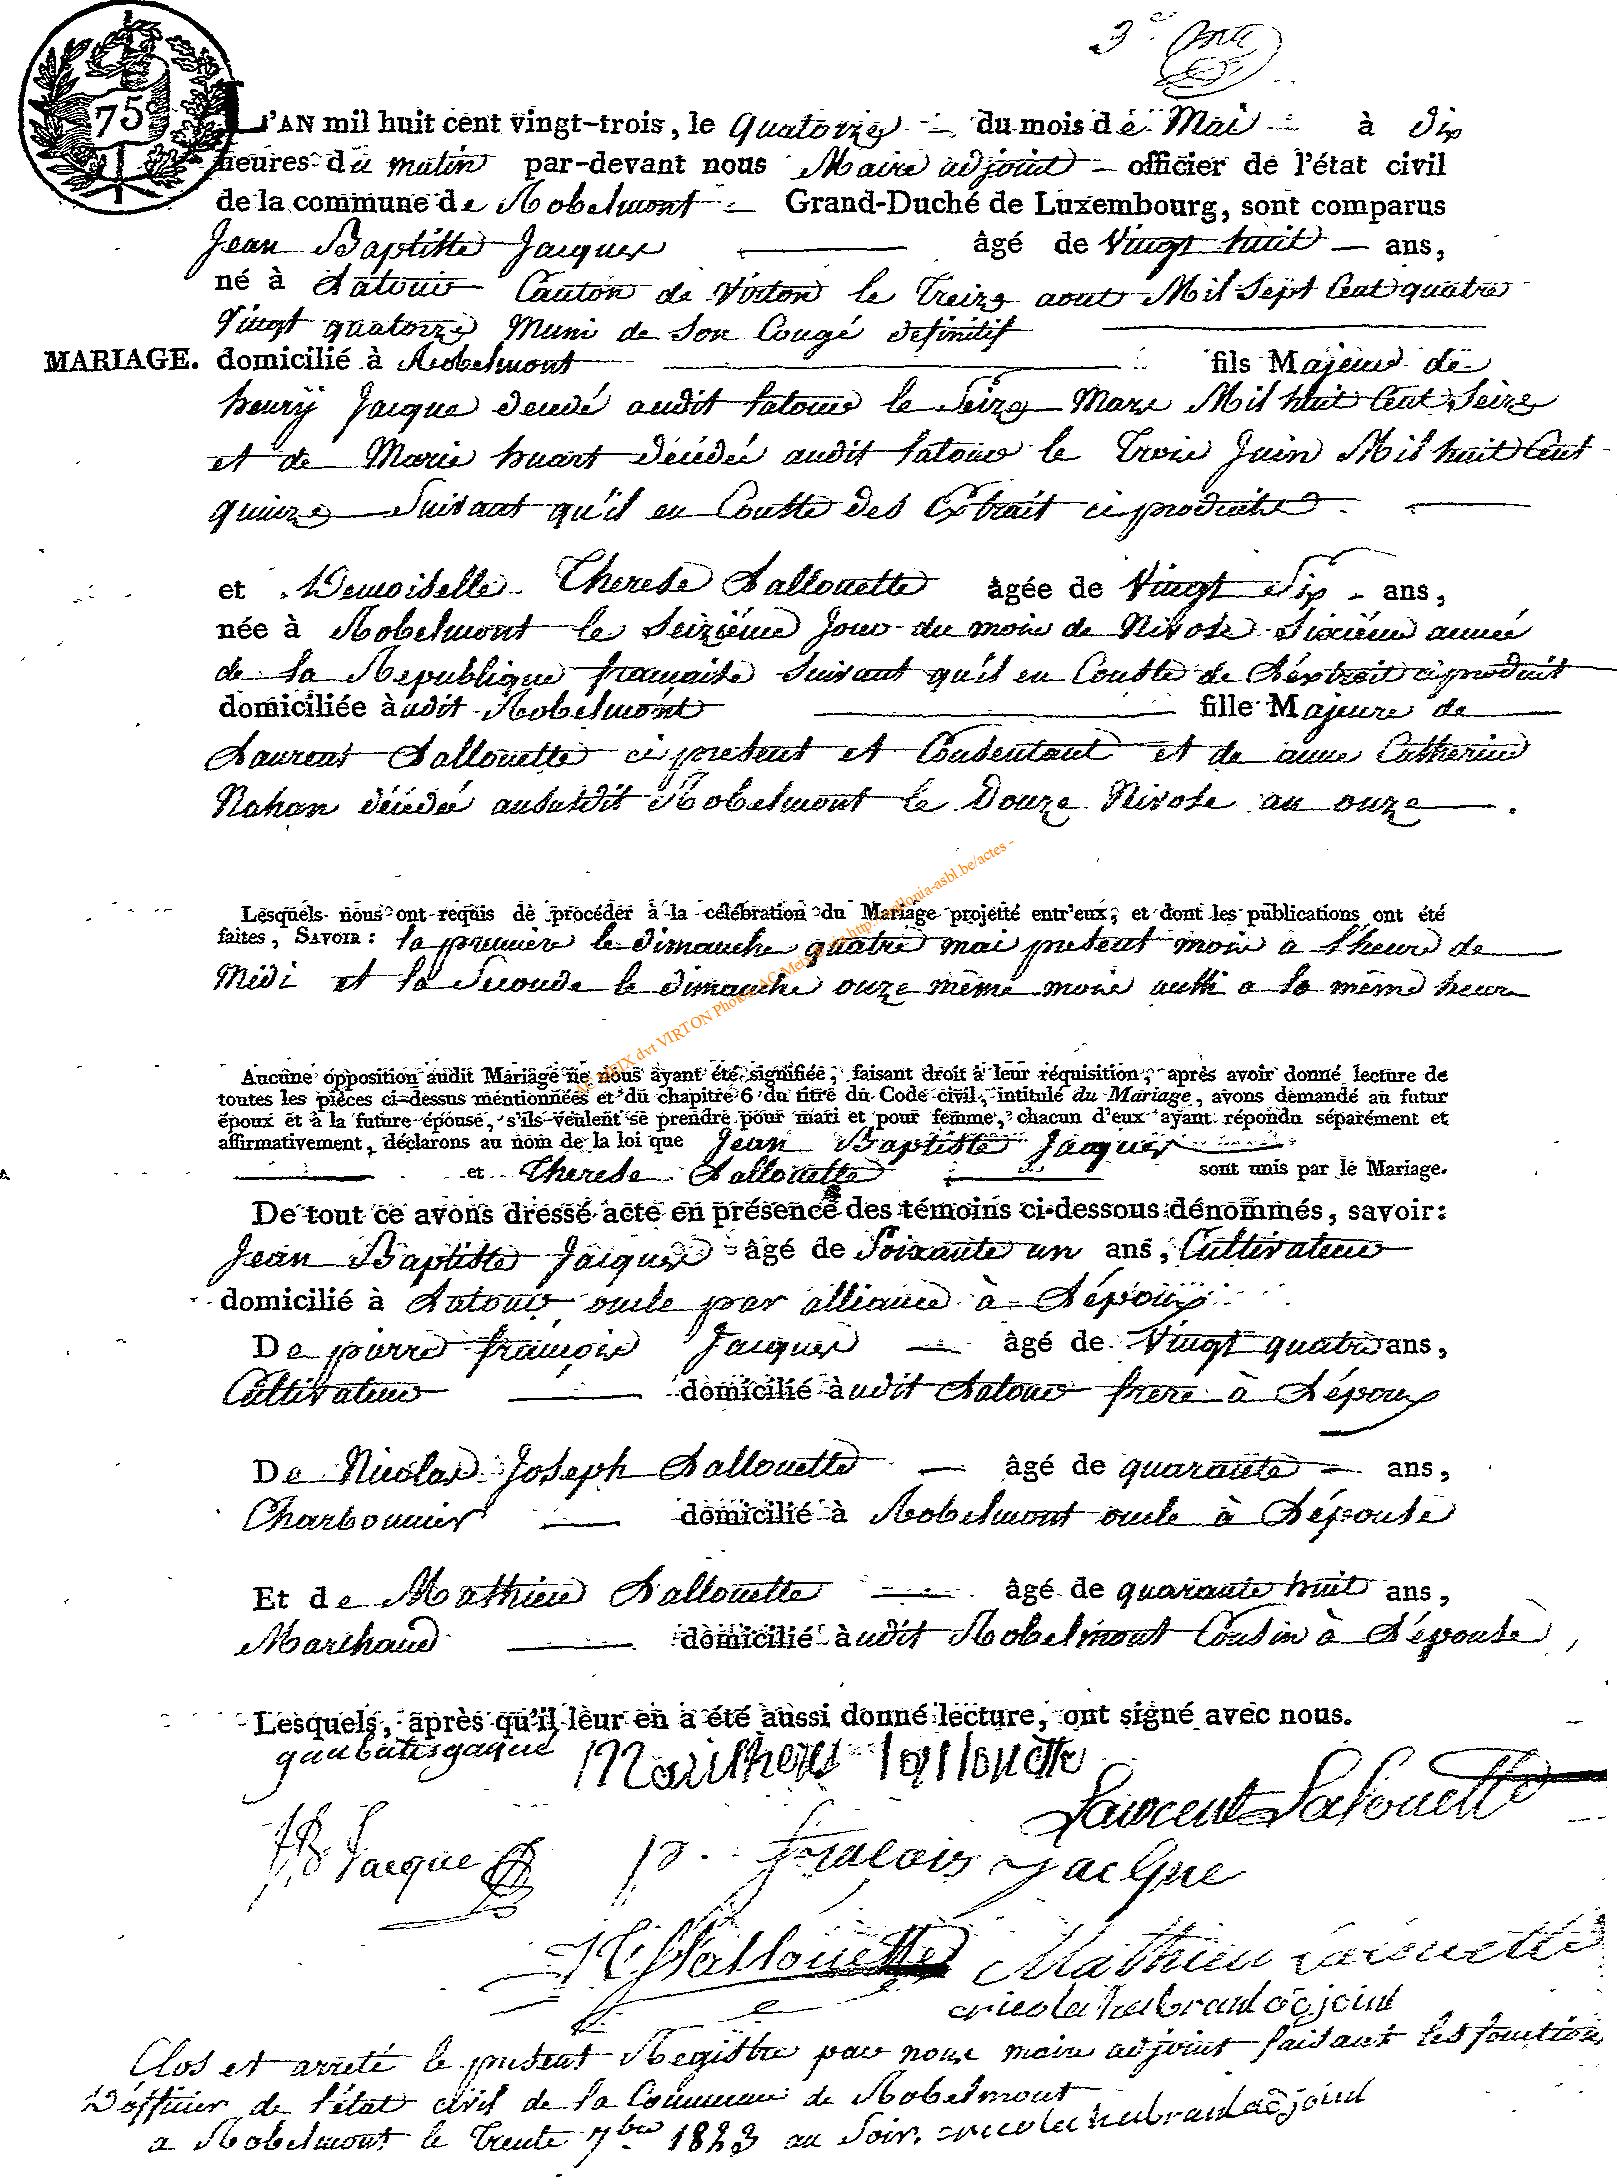 3e
75
L'AN mil huit cent vingt-trois, le Quatorze du mois de Mai à dix
heures du matin par-devant nous Maire adjoint officier de l'état civil
de la commune de Robelmont Grand-Duché de Luxembourg, sont comparus
Jean Baptiste Jacques âgé de Vingt huit ans,
né à Latour Canton de Virton le Treize aout Mil Sept Cent quatre
Vingt quatorze Muni de Son Congé definitif
MARIAGE. domicilié à Robelmont fils Majeur de
henry Jacque decedé audit latour le Seize Mars Mil huit Cent Seize
et de Marie huart décédée audit latour le Trois Juin Mil huit Cent
quinze Suivant qu'il en Conste des Extrait ci produits
et Demoiselle Therese Lallouette agée de Vingt Six ans,
née à Robelmont le Seizième Jour du mois de Nivose Sixième année
de la Republique francaise Suivant qu'il en Conste de L'extrait ci produit
domiciliée audit Robelmont fille Majeure de
Laurent Lallouette ci present et Consentant et de anne Catherine
Nahan décédée aususdit Robelmont le Douze Nivose an onze
Lesquels nous ont requis de procéder à la célébration du Mariage projetté entr'eux, et dont les publications ont été
faites, SAVOIR : la premiere le dimanche quatre mai present mois a l'heure de
Midi et la Seconde le dimanche onze même mois aussi a la même heure
AC MEIX dvt VIRTON Photos AC Meix http://gallonia-asbl.be/actes -
Aucune opposition audit Mariage ne nous ayant été signifiée, faisant droit à leur réquisition, après avoir donné lecture de
toutes les pièces ci-dessus mentionnées et du chapitre 6 du titre du Code civil, intitulé du Mariage, avons demandé au futur
époux et à la future épouse, s'ils veulent se prendre pour mari et pour femme, chacun d'eux ayant répondu séparément et
affirmativement, déclarons au nom de la loi que Jean Baptiste Jacques
et Therese Lallouette sont unis par le Mariage.
De tout ce avons dressé acte en présence des témoins ci-dessous dénommés, savoir :
Jean Baptiste Jacques âgé de Soixante un ans, Cultivateur
domicilié à Latour oncle par alliance à L'époux
De pierre françois Jacques âgé de Vingt quatre ans,
Cultivateur domicilié audit Latour frere à L'époux
De Nicolas Joseph Lallouette âgé de quarante ans,
Charbonnier domicilié à Robelmont oncle à L'épouse
Et de Mathieu Lallouette âgé de quarante huit ans,
Marchand domicilié audit Robelmont Cousin à L'épouse,
Lesquels, après qu'il leur en a été aussi donné lecture, ont signé avec nous.
Laurent Lalouette
JB Jacque
p. francois Jacque
NJ Lallouette Mathieu Lalouette
adjoint
Clos et arreté le present Registre par nous maire adjoint faisant les fonctions
D'officier de l'état civil de la Commune de Robelmont
a Robelmont le Trente 7bre 1823 au Soir. adjoint